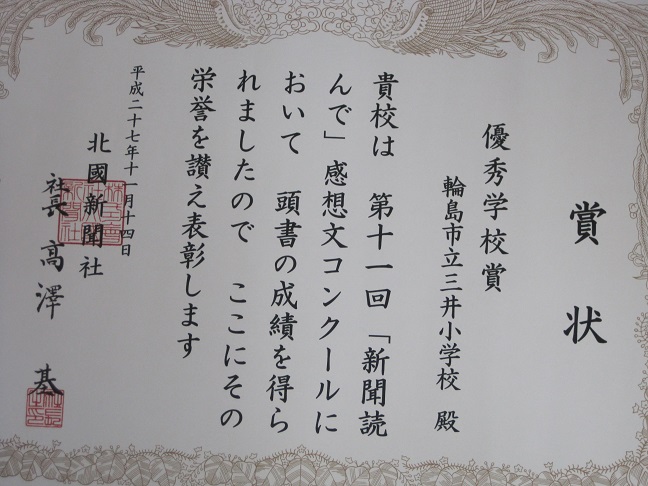 賞状
優秀学校賞
輪島市立三井小学校 殿
貴校は 第十一回「新聞読
んで」感想文コンクールに
おいて 頭書の成績を得ら
れましたので ここにその
栄誉を讃え表彰します
平成二十七年十一月十四日
北國新聞社
社長 高澤 基